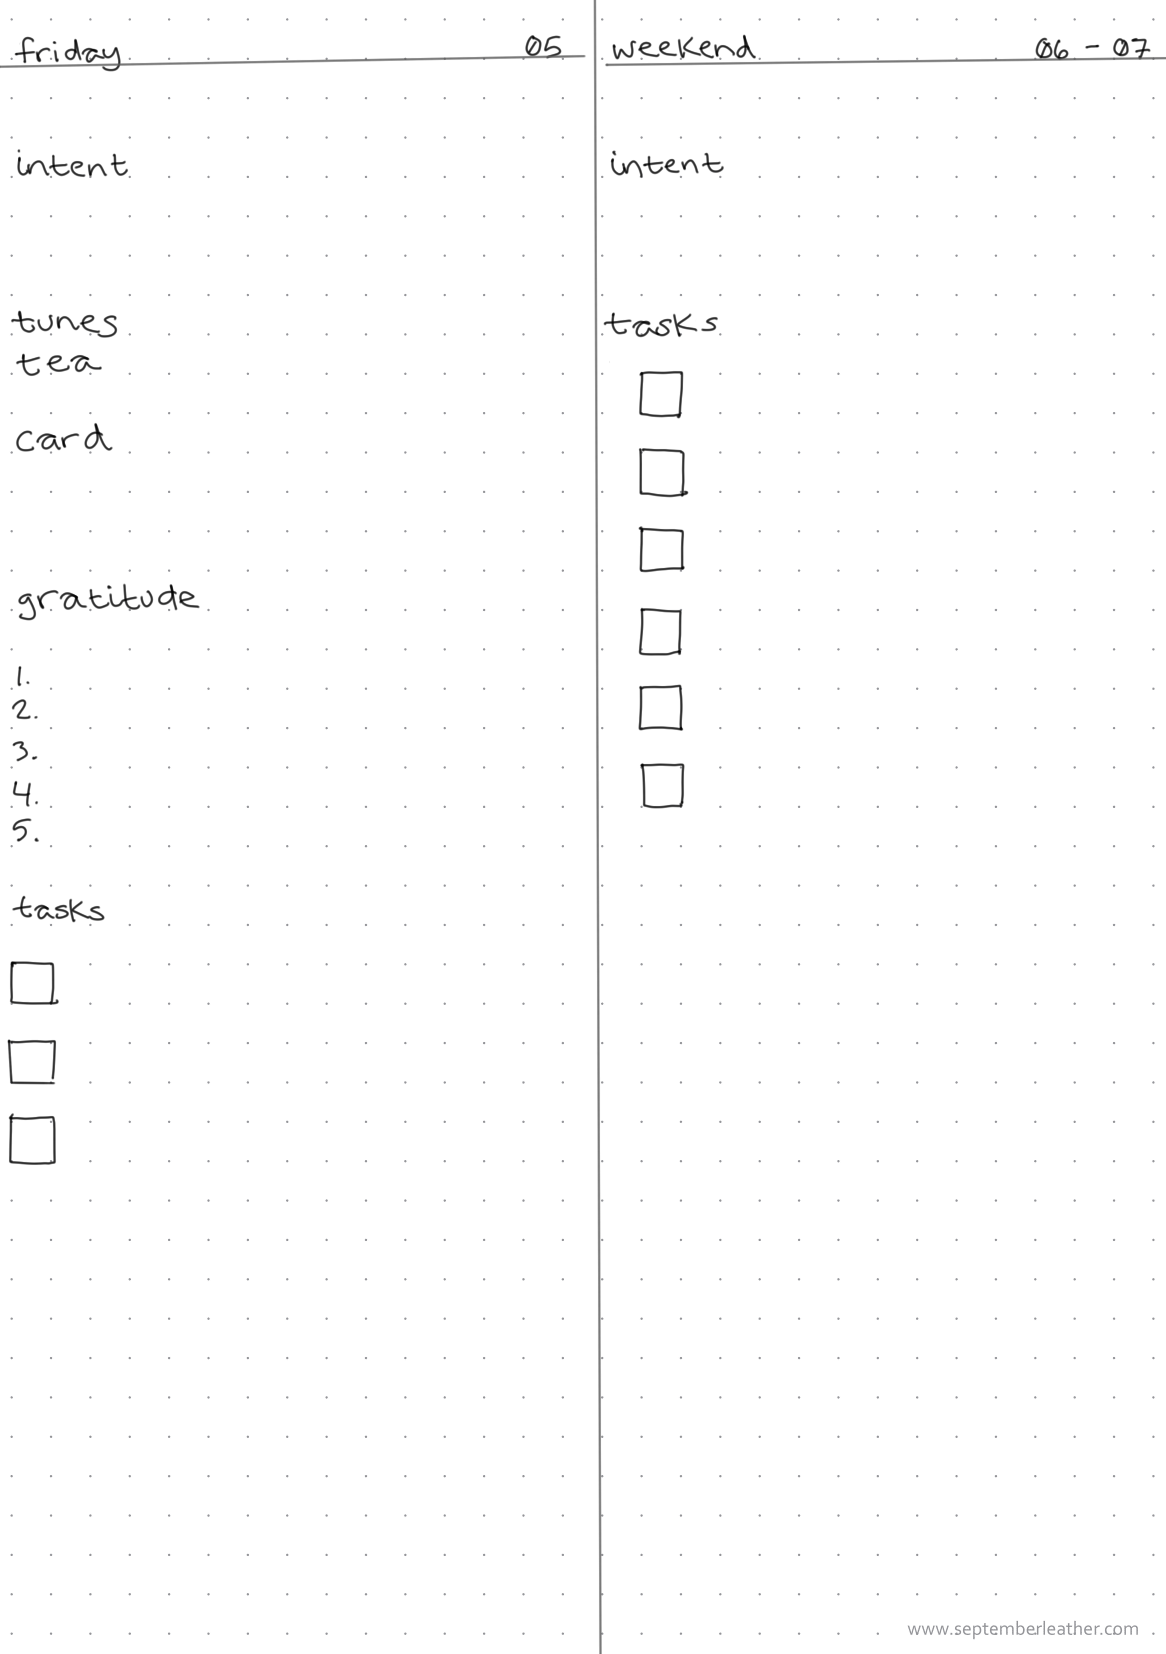 friday 05
intent
tunes
tea
card
gratitude
1.
2.
3.
4.
5.
tasks
weekend 06 - 07
intent
tasks
www.septemberleather.com